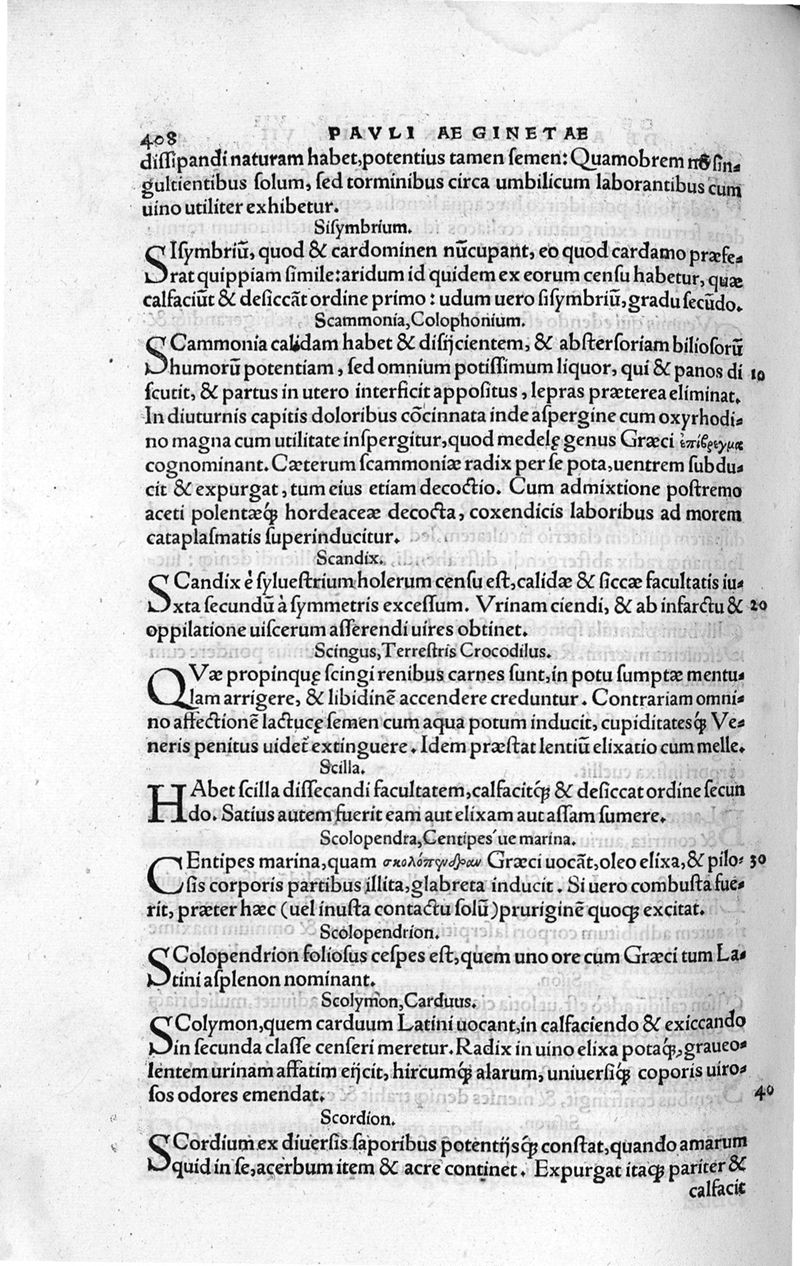 408 PAVLI AE GINETAE
diſſipandi naturam habet,potentius tamen ſemen: Quamobrem nõ ſin-
gultientibus ſolum, ſed torminibus circa umbilicum laborantibus cum
uino utiliter exhibetur.
Siſymbrium.
SIſymbriũ, quod & cardominen nũcupant, eo quod cardamo præfe-
rat quippiam ſimile:aridum id quidem ex eorum cenſu habetur, quæ
calfaciũt & deſiccãt ordine primo: udum uero ſiſymbriũ,gradu ſecũdo.
Scammonia,Colophonium.
SCammonia calidam habet & diſijcientem, & abſterſoriam bilioſorũ
humorũ potentiam, ſed omnium potiſſimum liquor, qui & panos di 10
ſcutit, & partus in utero interficit appoſitus, lepras præterea eliminat.
In diuturnis capitis doloribus cõcinnata inde aſpergine cum oxyrhodi-
no magna cum utilitate inſpergitur,quod medelę genus Græci ἐπίβρεγμα
cognominant. Cæterum ſcammoniæ radix per ſe pota,uentrem ſubdu-
cit & expurgat, tum eius etiam decoctio. Cum admixtione poſtremo
aceti polentæq́; hordeaceæ decocta, coxendicis laboribus ad morem
cataplaſmatis ſuperinducitur.
Scandix.
SCandix è ſylueſtrium holerum cenſu eſt,calidæ & ſiccæ facultatis iu-
xta ſecundũ à ſymmetris exceſſum. Vrinam ciendi, & ab infarctu & 20
oppilatione uiſcerum aſſerendi uires obtinet.
Scingus,Terreſtris Crocodilus.
QVæ propinquę ſcingi renibus carnes ſunt,in potu ſumptæ mentu-
lam arrigere, & libidinẽ accendere creduntur. Contrariam omni-
no affectionẽ lactucę ſemen cum aqua potum inducit, cupiditatesq́; Ve-
neris penitus uidet̃ extinguere. Idem præſtat lentiũ elixatio cum melle.
Scilla.
HAbet ſcilla diſſecandi facultatem,calfacitq́; & deſiccat ordine ſecun
do. Satius autem fuerit eam aut elixam aut aſſam ſumere.
Scolopendra,Centipes ue marina.
CEntipes marina, quam σκολόπενδραν Græci uocãt,oleo elixa,& pilo- 30
ſis corporis partibus illita,glabreta inducit. Si uero combuſta fue-
rit, præter hæc (uel inuſta contactu ſolũ)pruriginẽ quoq; excitat.
Scolopendrion.
SColopendrion folioſus ceſpes eſt,quem uno ore cum Græci tum La-
tini aſplenon nominant.
Scolymon,Carduus.
SColymon,quem carduum Latini uocant,in calfaciendo & exiccando
in ſecunda claſſe cenſeri meretur.Radix in uino elixa potaq́;,graueo-
lentem urinam affatim eijcit, hircumq́; alarum, uniuerſiq́; coporis uiro-
ſos odores emendat. 40
Scordion.
SCordium ex diuerſis ſaporibus potentijsq́; conſtat,quando amarum
quid in ſe,acerbum item & acre continet. Expurgat itaq; pariter &
calfacit